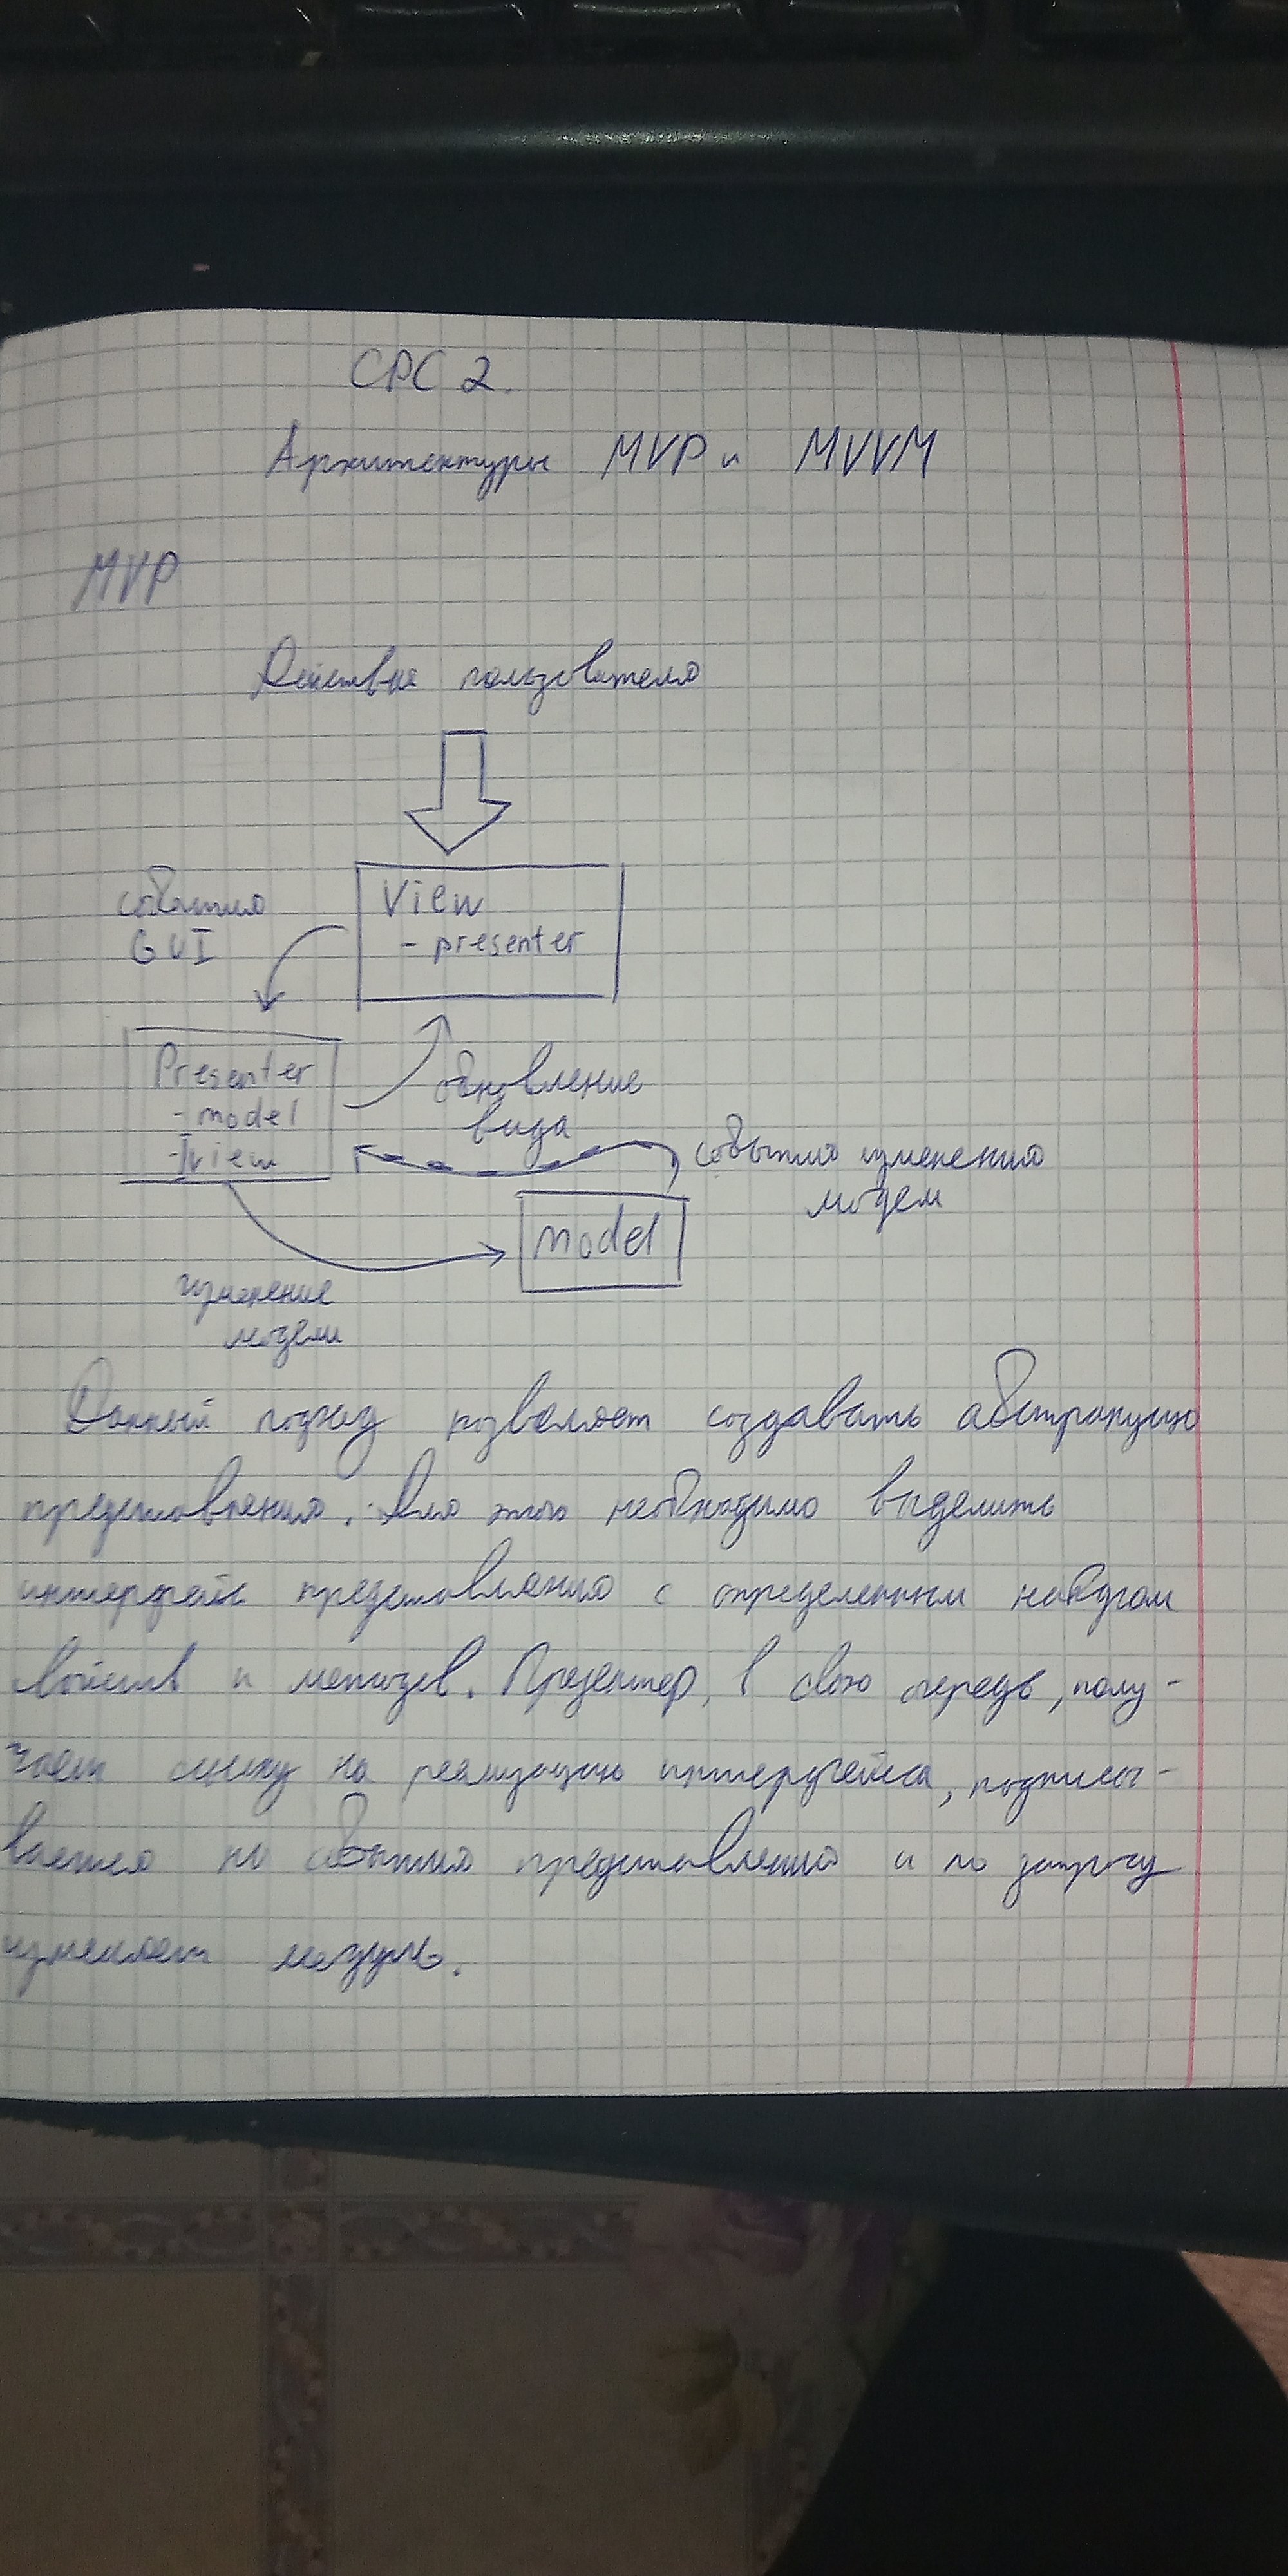 СРС 2.
Архитектуры MVP и MVVM
MVP
Действия пользователя
события
GUI
View
- presenter
Presenter
- model
- Iview
обновление
вида
события изменения
модели
model
изменение
модели
Данный подход позволяет создавать абстракцию
представления. Для этого необходимо выделить
интерфейс представления с определенным набором
свойств и методов. Презентер, в свою очередь, полу-
чает ссылку на реализацию интерфейса, подписы-
вается на события представления и по запросу
изменяет модуль.